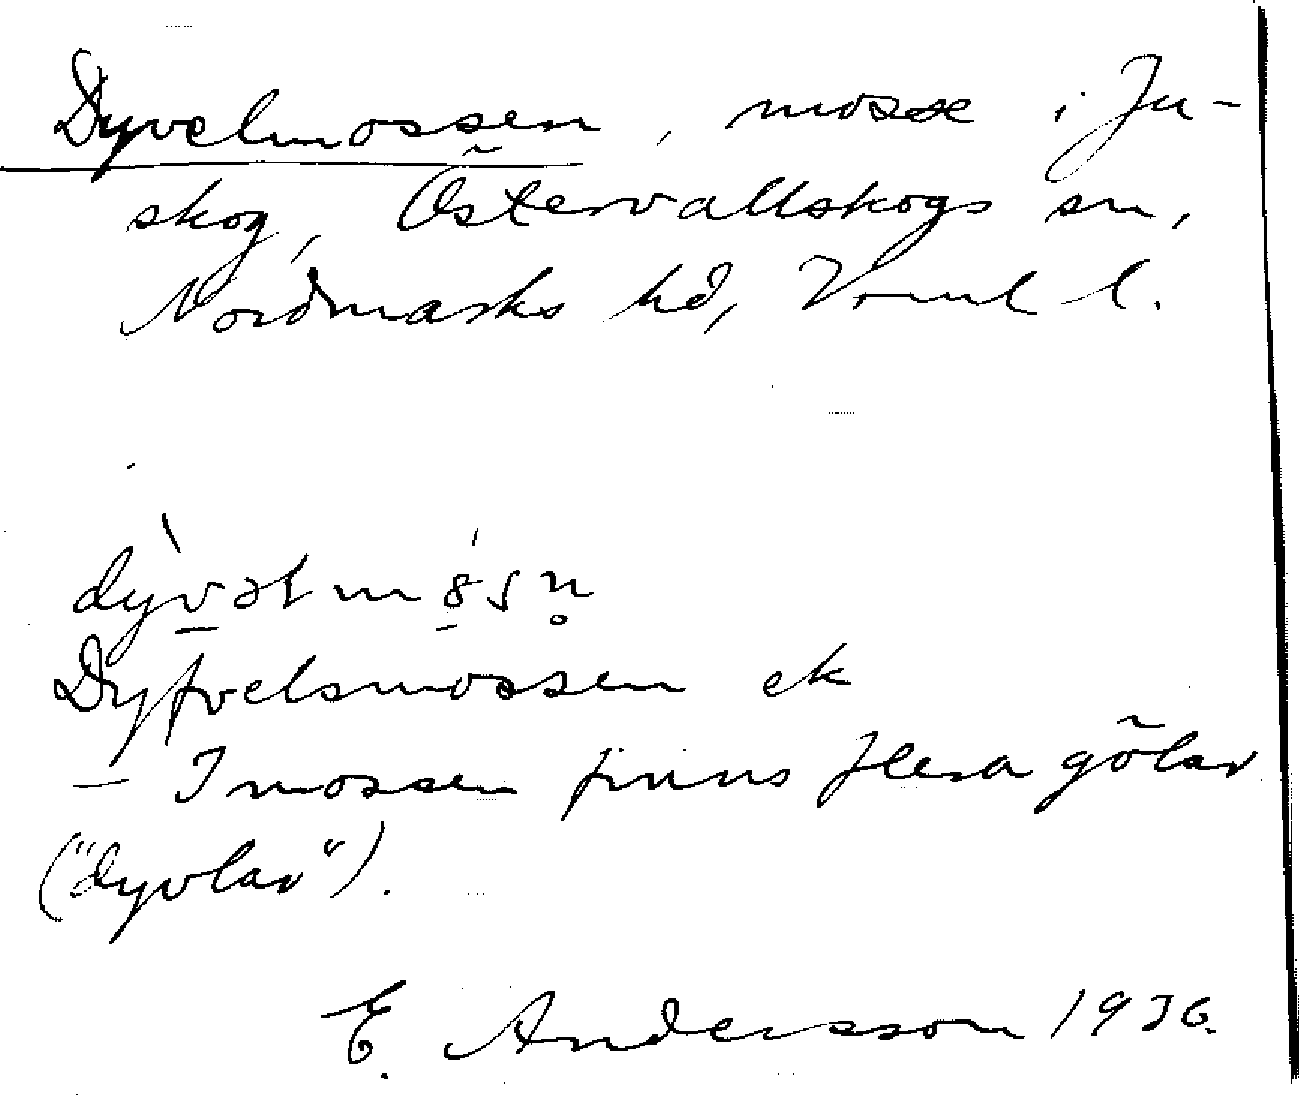 Dyvelmossen, mosse i Ju-
skog, Östervallskogs sn,
Nordmarks hd, Vrml l.
Dyfvelsmossen ek
– I mossen finns flera gölar
("dyvlar").
E. Andersson 1936.